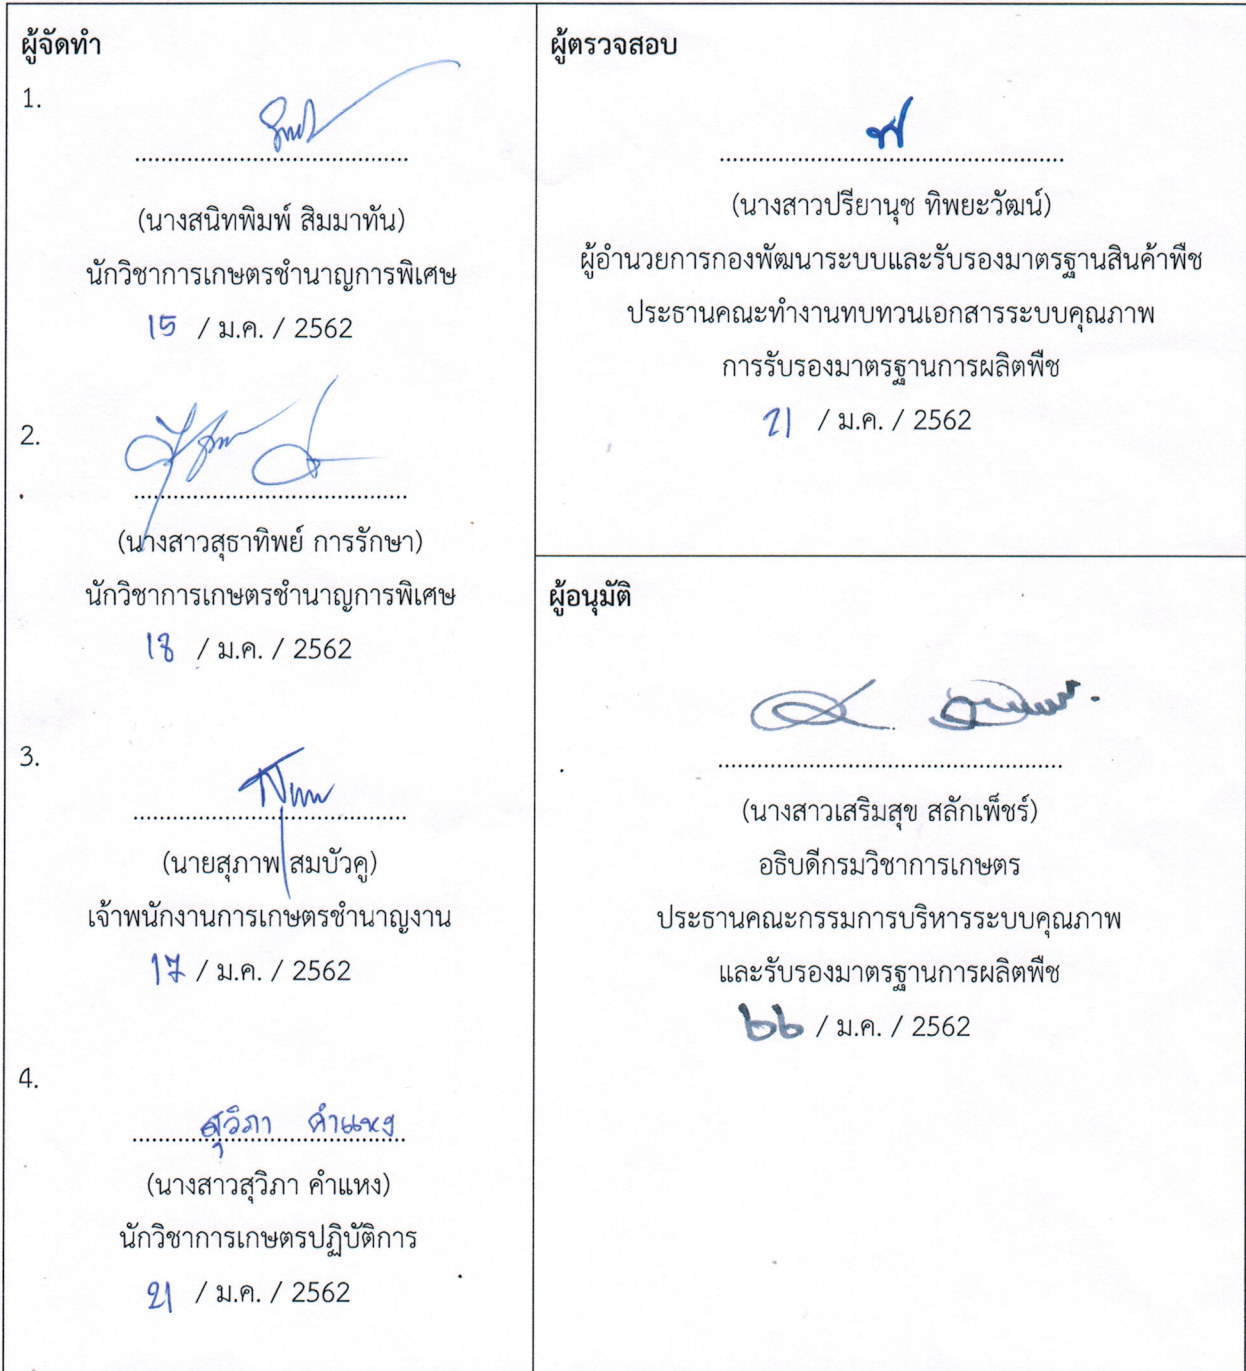 ผู้จัดทำ
1.
(นางสนิทพิมพ์ สิมมาทัน)
นักวิชาการเกษตรชำนาญการพิเศษ
15 / ม.ค. / 2562
2.
(นางสาวสุธาทิพย์ การรักษา)
นักวิชาการเกษตรชำนาญการพิเศษ
18 / ม.ค. / 2562
3.
(นายสุภาพ สมบัวคู)
เจ้าพนักงานการเกษตรชำนาญงาน
17 / ม.ค. / 2562
4.
สุวิภา คำแหง
(นางสาวสุวิภา คำแหง)
นักวิชาการเกษตรปฏิบัติการ
21 / ม.ค. / 2562
ผู้ตรวจสอบ
(นางสาวปรียานุช ทิพยะวัฒน์)
ผู้อำนวยการกองพัฒนาระบบและรับรองมาตรฐานสินค้าพืช
ประธานคณะทำงานทบทวนเอกสารระบบคุณภาพ
การรับรองมาตรฐานการผลิตพืช
21 / ม.ค. / 2562
ผู้อนุมัติ
(นางสาวเสริมสุข สลักเพ็ชร์)
อธิบดีกรมวิชาการเกษตร
ประธานคณะกรรมการบริหารระบบคุณภาพ
และรับรองมาตรฐานการผลิตพืช
๒๒ / ม.ค. / 2562